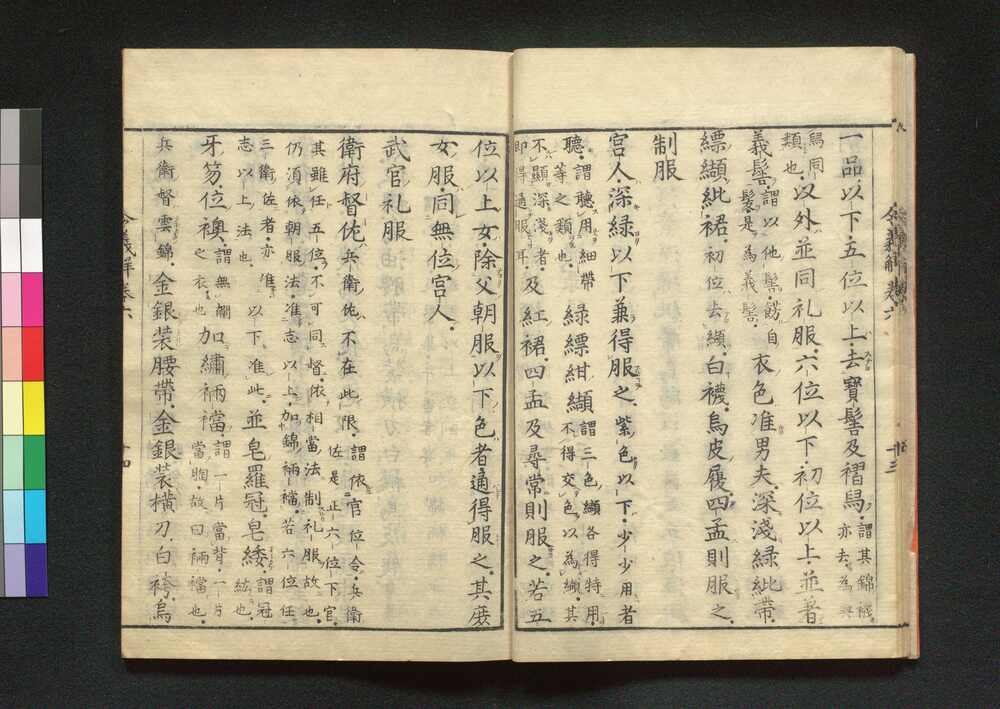 一品以下五位以上去寶髻及褶舄謂其錦襪
亦去為與
舄同
類也以外並同礼服六位以下初位以上並著
義髻謂以他髻餝自
髪是為義髻衣色准男夫深淺緑紕帶
縹纈紕裙初位去纈白襪烏皮履四孟則服之
制服
宮人深緑以下兼得服之紫色以下少少用者
聽謂聽用細帶
等之類也緑縹紺纈謂三色纈各得特用
不得交色以為纈其
不顯深淺者
即得通服耳及紅裙四孟及尋常則服之若五
位以上女除父朝服以下色者通得服之其庶
女服同無位宮人
武官礼服
衛府督佐兵衛佐不在此限謂依官位令兵衛
佐是正六位下官
其雖任五位不可同督依相當法制礼服故也
仍須依朝服法准志以上加錦裲襠若六位任
三衛佐者亦准
志以上法也以下准此並皂羅冠皂緌謂冠
紘也
牙笏位襖謂無襴
之衣也加繡裲襠謂一片當背一片
當胸故曰裲襠也
兵衛督雲錦金銀装腰帶金銀装横刀白袴烏
令義解卷六
十三
令義解卷六
十四